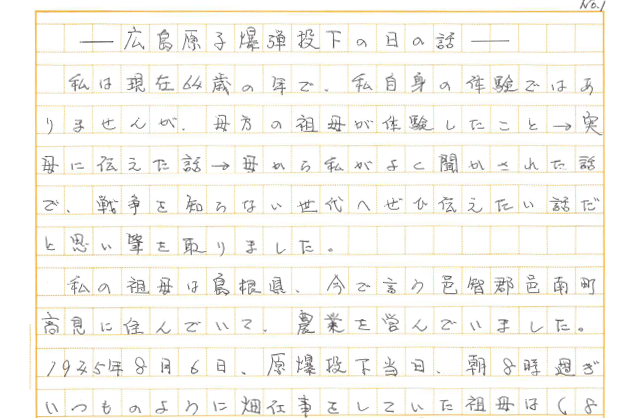 No.1
── 広島原子爆弾投下の日の話 ──
私は現在64歳の年で、私自身の体験ではあ
りませんが、母方の祖母が体験したこと→実
母に伝えた話→母から私がよく聞かされた話
で、戦争を知らない世代へぜひ伝えたい話だ
と思い筆を取りました。
私の祖母は島根県、今で言う邑智郡邑南町
高見に住んでいて、農業を営んでいました。
1945年8月6日、原爆投下当日、朝8時過ぎ
いつものように畑仕事をしていた祖母は(8